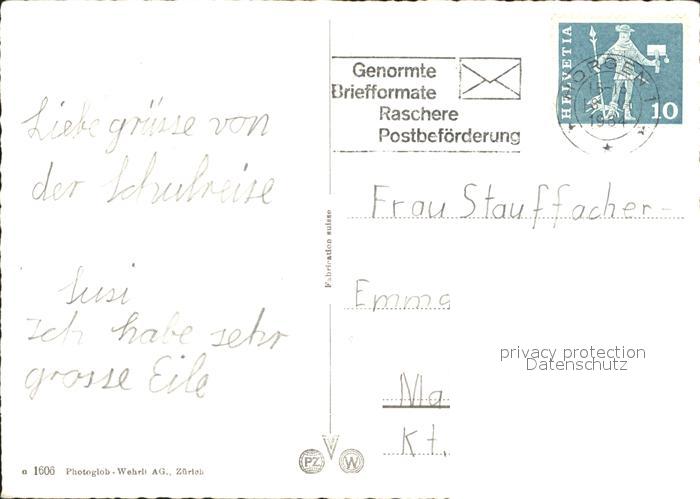 Liebe grüsse von
der Schulreise
Susi
Ich habe sehr
grosse Eile
α 1606 Photoglob-Wehrli AG., Zürich
Fabrication suisse
PZ W
Genormte
Briefformate
Raschere
Postbeförderung
HELVETIA
10
HORGEN 1
Frau Stauffacher-
Emma
privacy protection
Datenschutz
Ma
Kt.